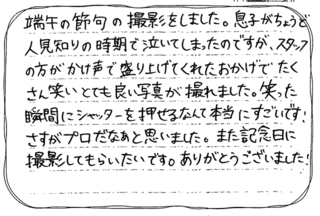 端午の節句の撮影をしました。息子がちょうど
人見知りの時期で泣いてしまったのですが、スタッフ
の方がかけ声で盛り上げてくれたおかげで たく
さん笑い とても良い写真が撮れました。笑った
瞬間にシャッターを押せるなんて本当にすごいです!
さすがプロだなぁと思いました。また記念日に
撮影してもらいたいです。ありがとうございました!